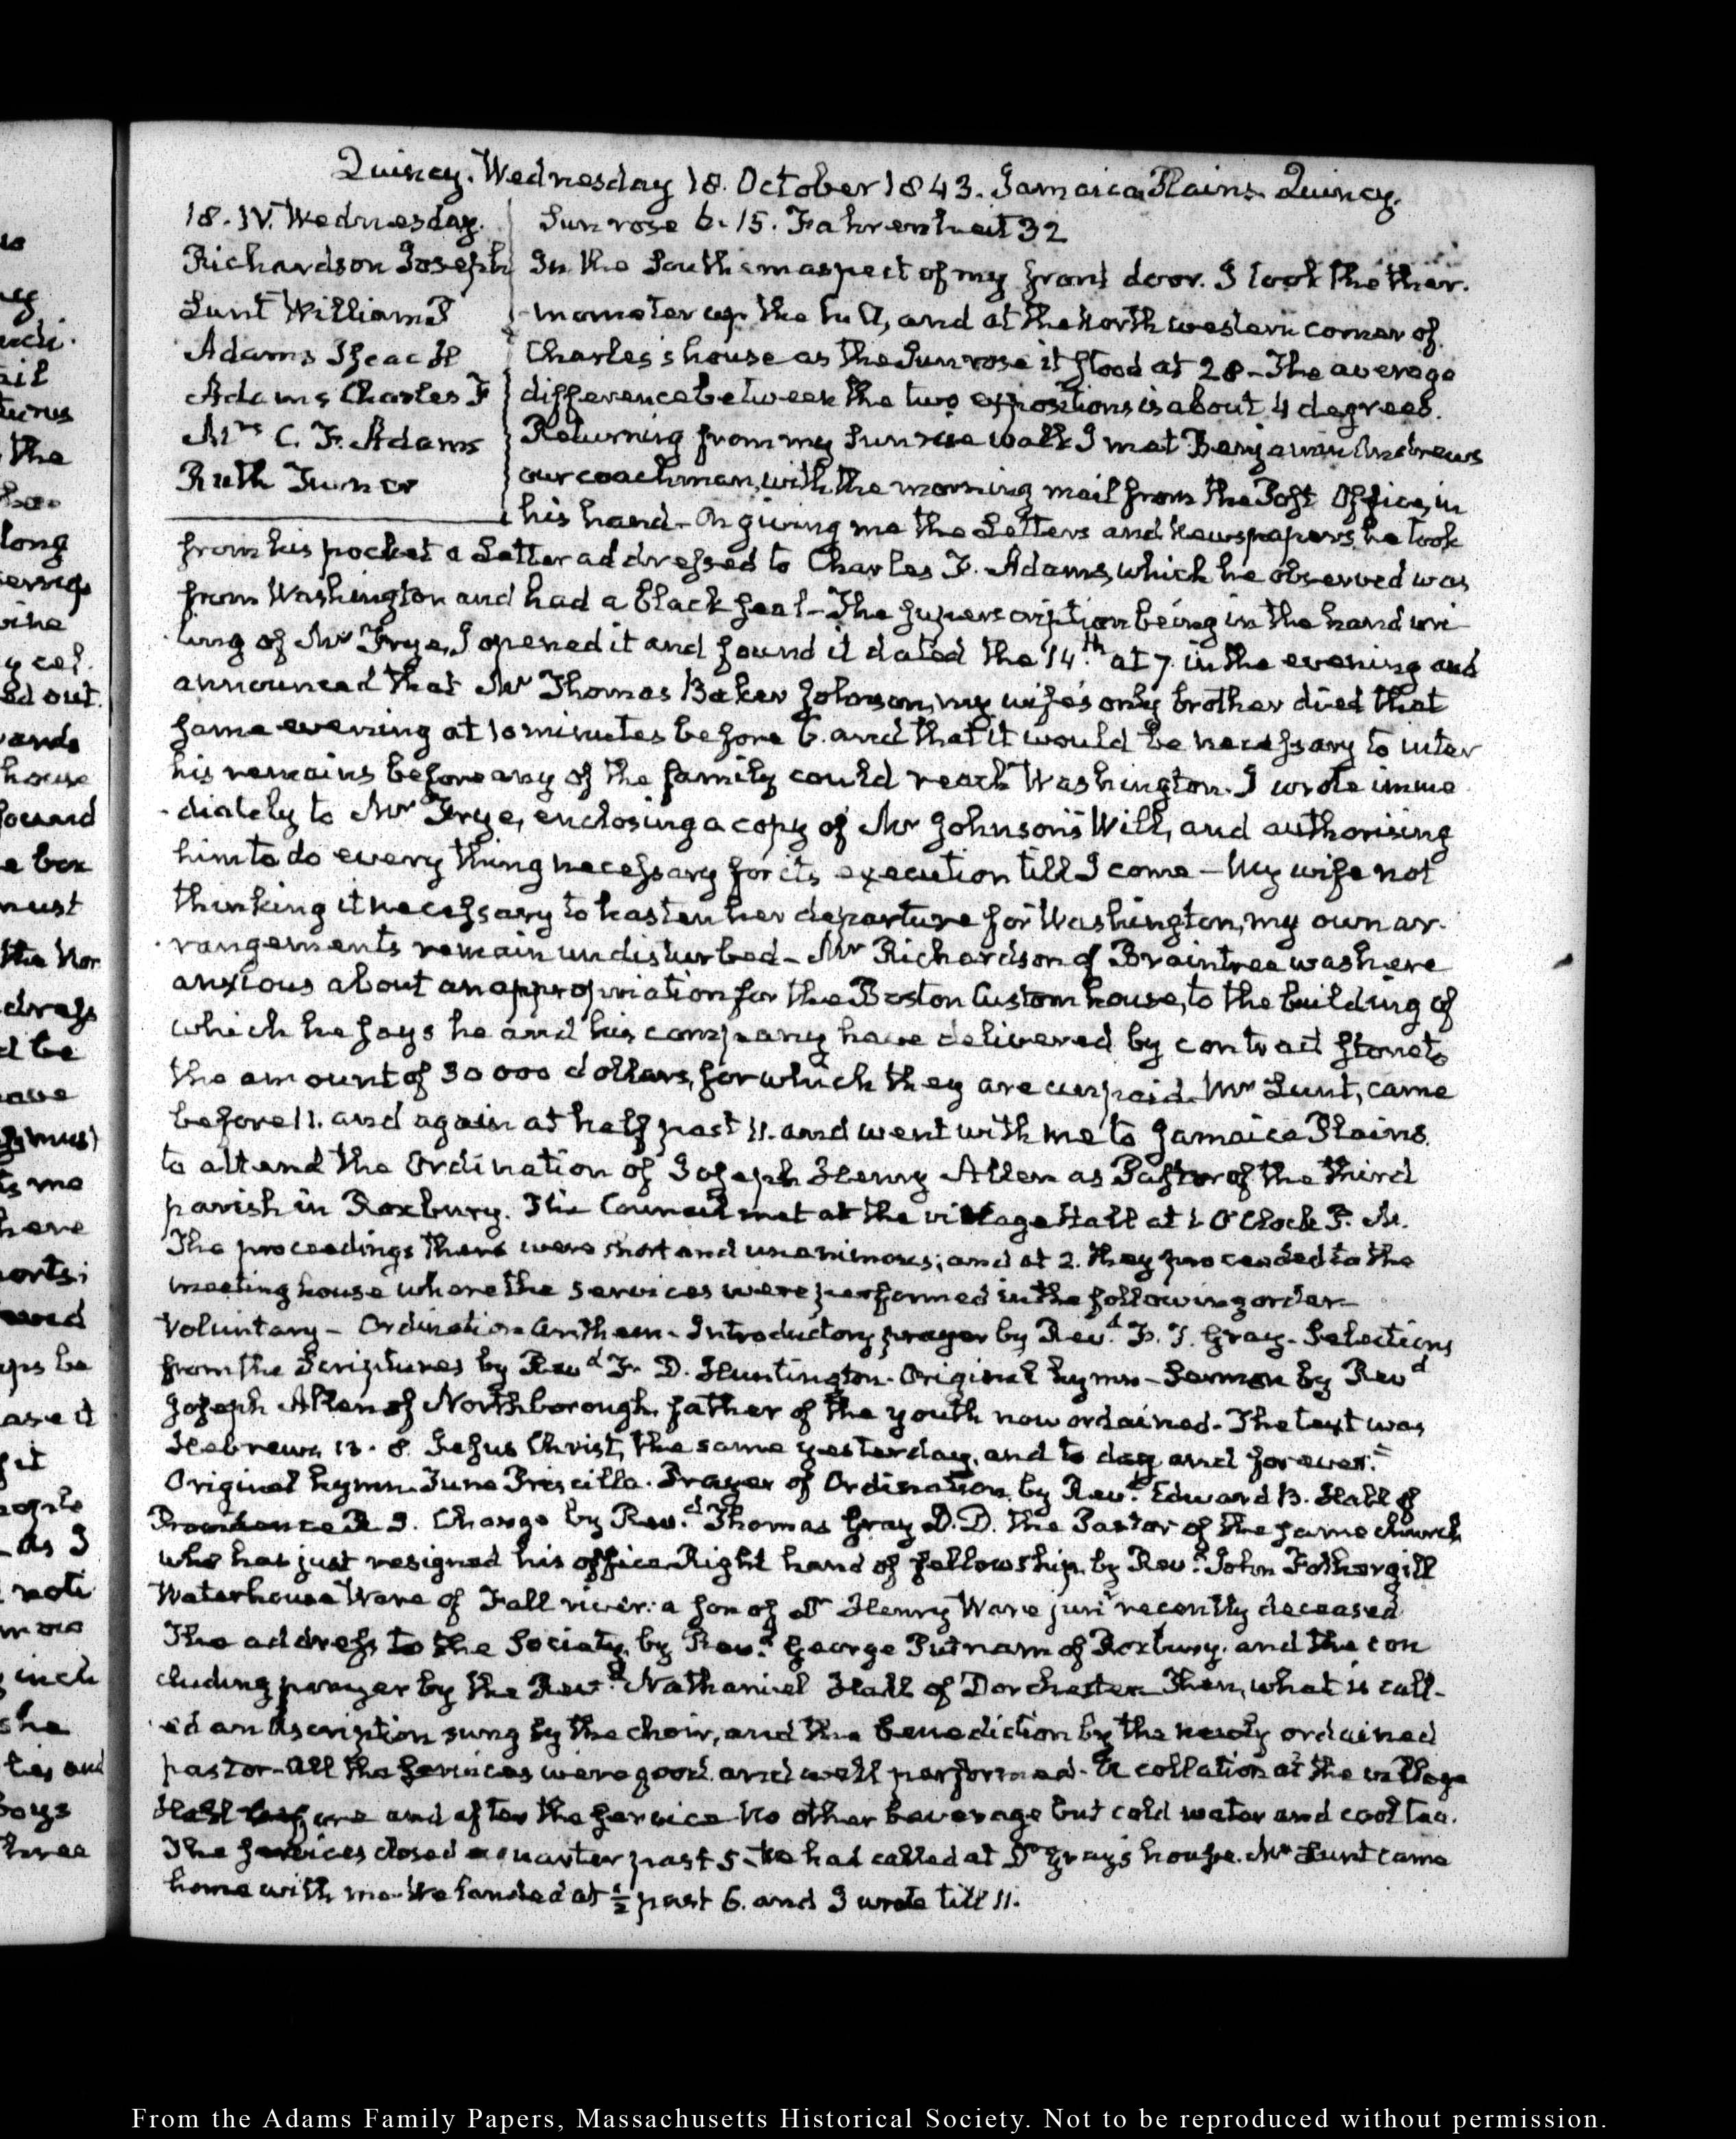 Quincy. Wednesday 18. October 1843. Jamaica Plains. Quincy.
18. IV. Wednesday.
Richardson Joseph
Lunt William P
Adams Isaac H
Adams Charles F
Mrs C. F. Adams
Ruth Turner
Sun rose 6.15. Fahrenheit 32
In the Southern aspect of my front door. I took the ther-
-mometer up the hill, and at the North western corner of
Charles's house as the Sun rose it stood at 28 - The average
difference between the two expositions is about 4 degrees.
Returning from my Sun rise walk I met Benjamin Andrews
our coachman, with the morning mail from the Post Office, in
his hand - On giving me the Letters and Newspapers, he took
from his pocket a Letter addressed to Charles F. Adams, which he observed was
from Washington and had a black seal - The superscription being in the hand wri-
ting of Mr Frye, I opened it and found it dated the 14th at 7. in the evening and
announced that Mr Thomas Baker Johnson, my wife's only brother died that
same evening at 10 minutes before 6. and that it would be necessary to inter
his remains before any of the family could reach Washington. I wrote imme
-diately to Mr Frye, enclosing a copy of Mr Johnson's Will, and authorising
him to do every thing necessary for its execution till I come - My wife not
thinking it necessary to hasten her departure for Washington, my own ar-
-rangements remain undisturbed - Mr Richardson of Braintree was here
anxious about an appropriation for the Boston Custom house, to the building of
which he says he and his company have delivered by contract stone to
the amount of 30 000 dollars, for which they are unpaid. Mr Lunt, came
before 11. and again at half past 11. and went with me to Jamaica Plains.
to attend the Ordination of Joseph Henry Allen as Pastor of the third
parish in Roxbury. The Council met at the village Hall at 1 O'Clock P. M.
The proceedings there were short and unanimous; and at 2. they proceeded to the
meeting house where the services were performed in the following order
Voluntary - Ordination Anthem - Introductory prayer by Revd. F. T. Gray - Selections
from the Scriptures by Revd F. D. Huntington. Original hymn - Sermon by Revd
Joseph Allen of Northborough, father of the youth now ordained. The text was
Hebrews 13. 8. Jesus Christ, the same yesterday, and to day and forever."
Original hymn. Tune Priscilla. Prayer of Ordination, by Revd. Edward B. Hall of
Providence R. I. Charge by Revd. Thomas Gray D.D. the Pastor of the same church
who has just resigned his office Right hand of fellowship by Revd. John Fothergill
Waterhouse Ware of Fall river: a son of Dr Henry Ware junr recently deceased
The address to the Society, by Revd. George Putnam of Roxbury, and the con
cluding prayer by the Revd. Nathaniel Hall of Dorchester Then, what is call-
-ed an Ascription sung by the choir, and the benediction by the newly ordained
pastor - All the services were good and well performed - A collation at the village
Hall before and after the service No other beverage but cold water and cool tea.
The services closed a quarter past 5 - We had called at Dr Gray's house. Mr Lunt came
home with me. We landed at ½ past 6. and I wrote till 11.
From the Adams Family Papers, Massachusetts Historical Society. Not to be reproduced without permission.